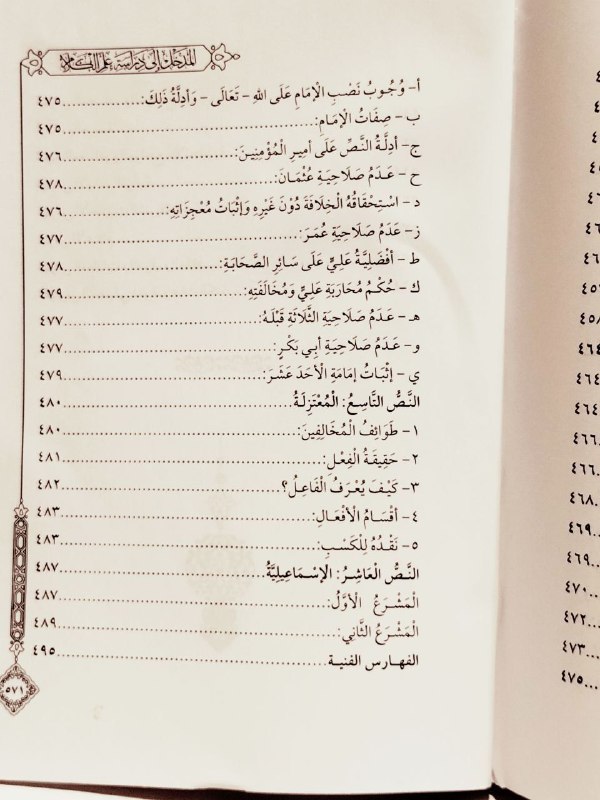 المدخل إلى دراسة علم الكلام
أ- وُجُوبُ نَصْبِ الْإِمَامِ عَلَى اللهِ - تَعَالَى - وَأَدِلَّةُ ذَلِكَ: ٤٧٥
ب- صِفَاتُ الْإِمَامِ: ٤٧٥
ج- أَدِلَّةُ النَّصِّ عَلَى أَمِيرِ الْمُؤْمِنِينَ: ٤٧٦
ح- عَدَمُ صَلَاحِيَةِ عُثْمَانَ: ٤٧٨
د- اسْتِحْقَاقُهُ الْخِلَافَةَ دُونَ غَيْرِهِ وَإِثْبَاتُ مُعْجِزَاتِهِ: ٤٧٦
ز- عَدَمُ صَلَاحِيَةِ عُمَرَ: ٤٧٧
ط- أَفْضَلِيَّةُ عَلِيٍّ عَلَى سَائِرِ الصَّحَابَةِ: ٤٧٨
ك- حُكْمُ مُحَارَبَةِ عَلِيٍّ وَمُخَالَفَتِهِ: ٤٧٩
هـ- عَدَمُ صَلَاحِيَةِ الثَّلَاثَةِ قَبْلَهُ: ٤٧٧
و- عَدَمُ صَلَاحِيَةِ أَبِي بَكْرٍ: ٤٧٧
ي- إِثْبَاتُ إِمَامَةِ الْأَحَدَ عَشَرَ: ٤٧٩
النَّصُّ التَّاسِعُ: الْمُعْتَزِلَةُ ٤٨٠
١- طَوَائِفُ الْمُخَالِفِينَ: ٤٨٠
٢- حَقِيقَةُ الْفِعْلِ: ٤٨١
٣- كَيْفَ يُعْرَفُ الْفَاعِلُ؟ ٤٨٢
٤- أَقْسَامُ الْأَفْعَالِ: ٤٨٣
٥- نَقْدُهُ لِلْكَسْبِ: ٤٨٣
النَّصُّ الْعَاشِرُ: الْإِسْمَاعِيلِيَّةُ ٤٨٧
الْمَشْرَعُ الْأَوَّلُ: ٤٨٧
الْمَشْرَعُ الثَّانِي: ٤٨٩
الفهارس الفنية ٤٩٥
٥٧١
٤٦٤
٤٦٤
٤٦٦
٤٦٦
٤٦٨
٤٦٩
٤٦٩
٤٧٠
٤٧٢
٤٧٣
٤٧٥